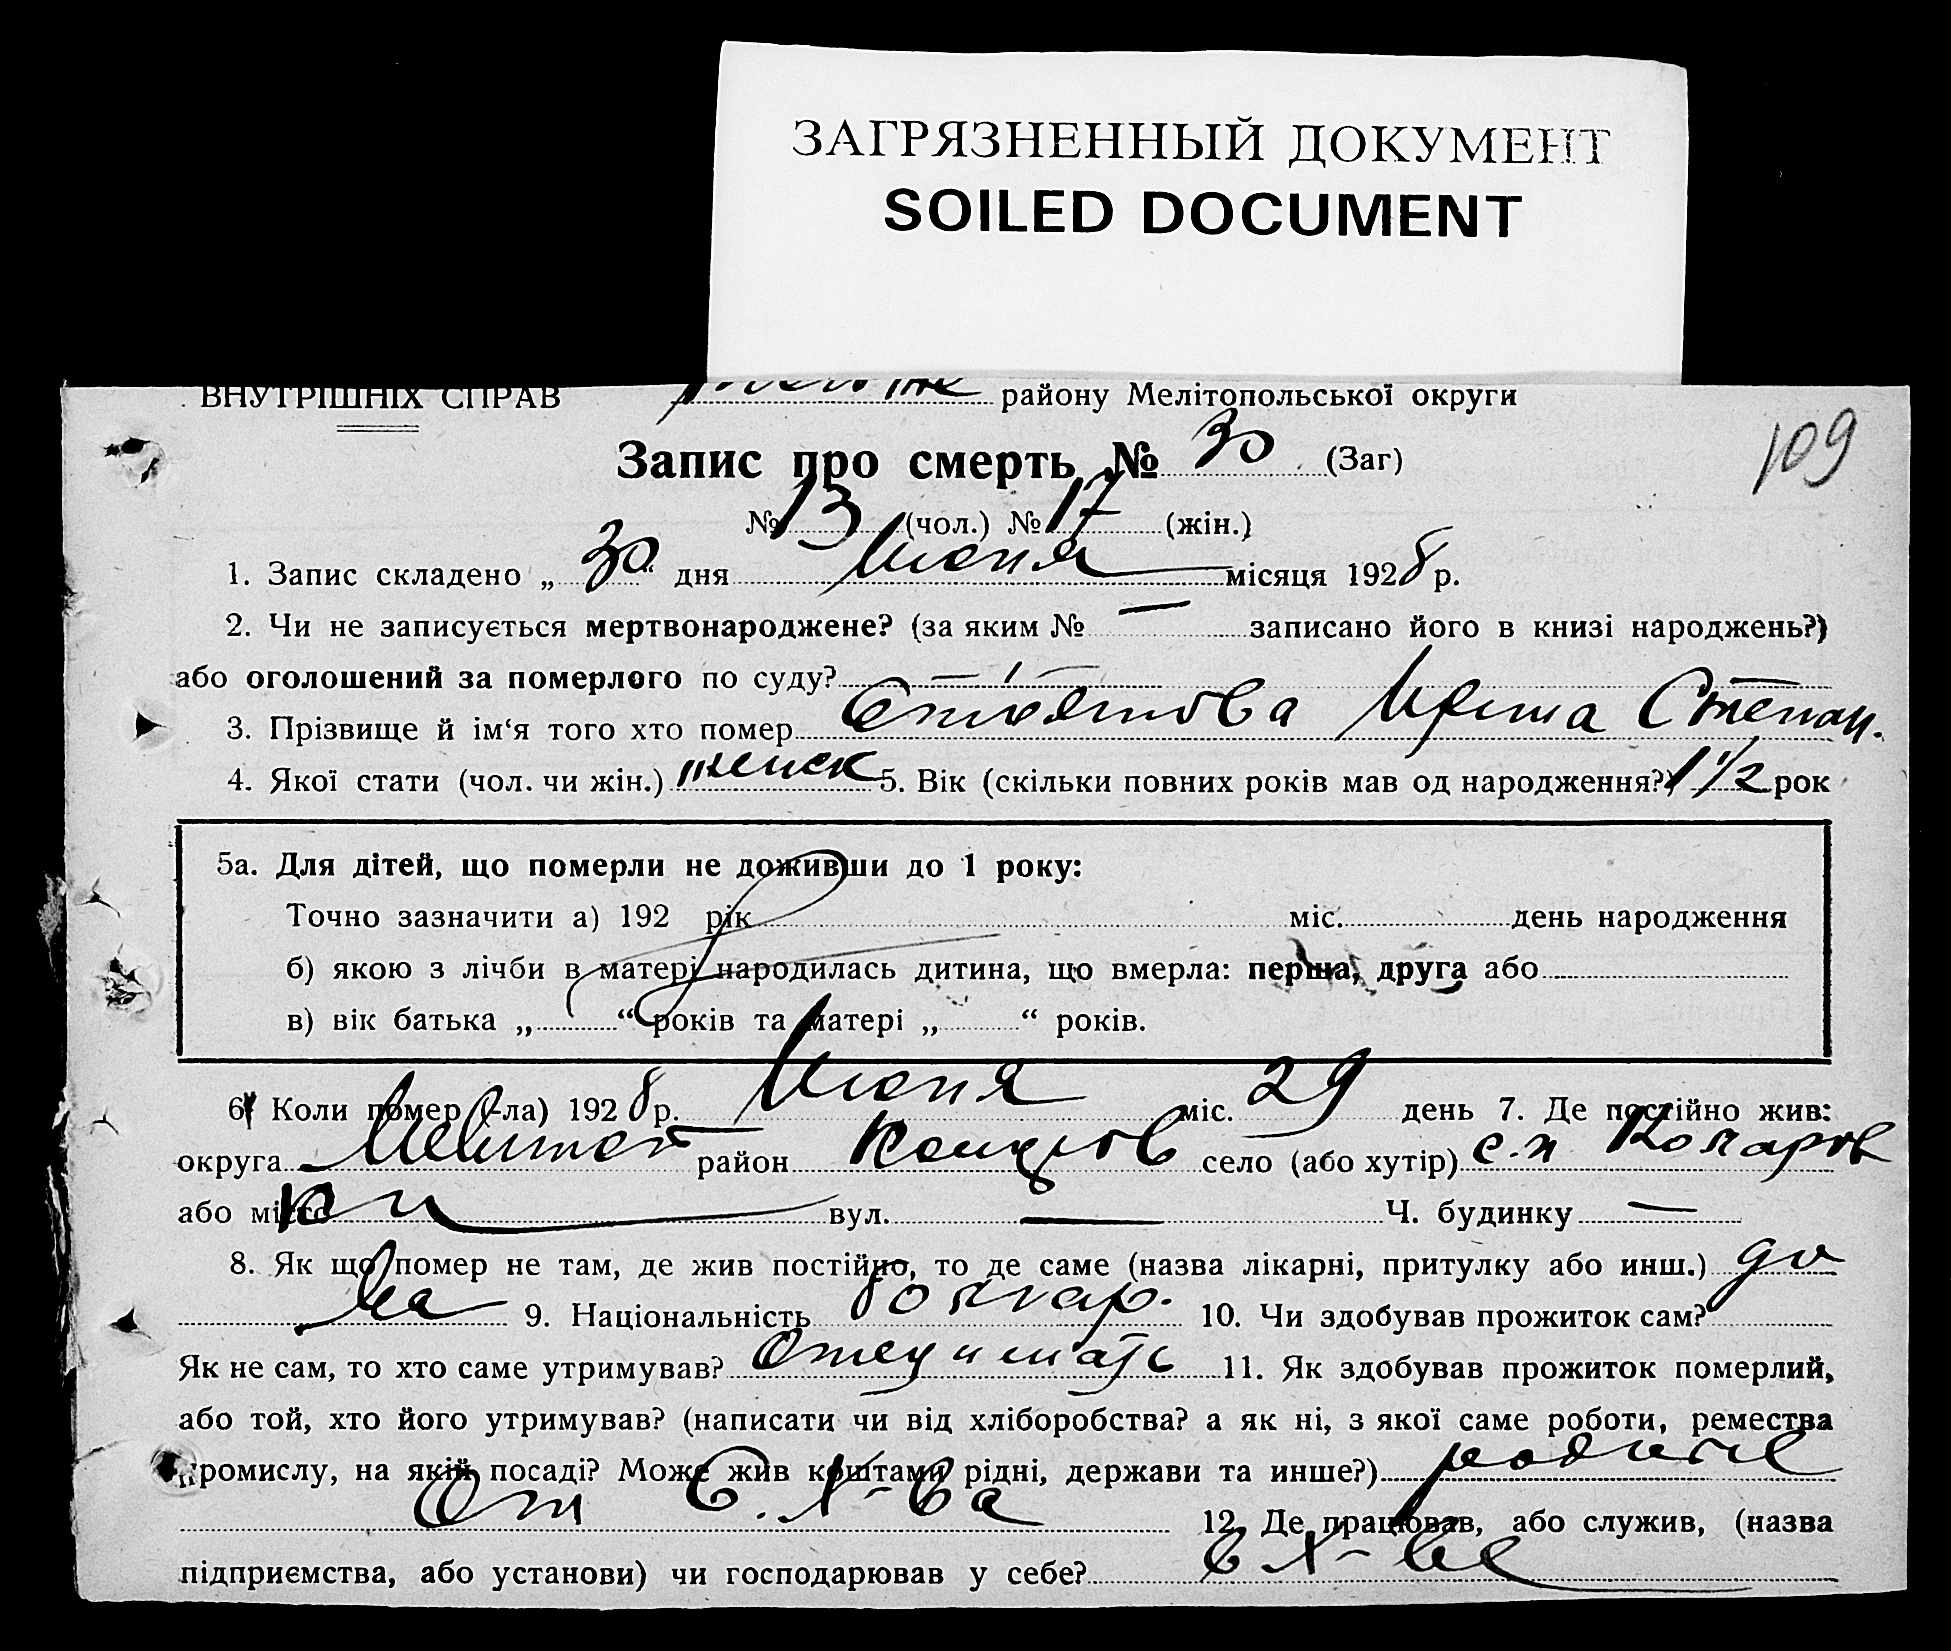 ЗАГРЯЗНЕННЫЙ ДОКУМЕНТ
SOILED DOCUMENT
ВНУТРІШНІХ СПРАВ району Мелітопольської округи
109
Запис про смерть № 30 (Заг)
№ 13 (чол.) № 17 (жін.)
1. Запис складено „ 30 “ дня Июня місяця 1928 р.
2. Чи не записується мертвонароджене? (за яким № — записано його в книзі народжень?)
або оголошений за померлого по суду?
3. Прізвище й ім‘я того хто помер Ирина Степан.
4. Якої стати (чол. чи жін.) женск 5. Вік (скільки повних років мав од народження?) 1 1/2 рок
5а. Для дітей, що померли не доживши до 1 року:
Точно зазначити а) 192 рік міс. день народження
б) якою з лічби в матері народилась дитина, що вмерла: перша, друга або
в) вік батька „ “ років та матері „ “ років.
6. Коли помер (-ла) 1928 р. Июня міс. 29 день 7. Де постійно жив:
округа Мелитоп район село (або хутір)
або місто вул. — Ч. будинку —
8. Як що помер не там, де жив постійно, то де саме (назва лікарні, притулку або инш.) до
ма 9. Національність болгар. 10. Чи здобував прожиток сам?
Як не сам, то хто саме утримував? Отец и мать 11. Як здобував прожиток померлий,
або той, хто його утримував? (написати чи від хліборобства? а як ні, з якої саме роботи, ремества
промислу, на якій посаді? Може жив коштами рідні, держави та инше?)
От С. Х-ва 12. Де працював, або служив, (назва
підприємства, або установи) чи господарював у себе? в Х-ве